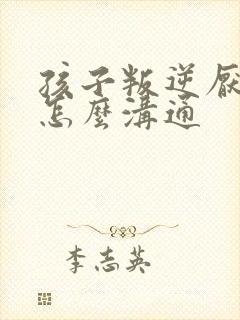 孩子叛逆厭
怎麼溝通
李志英